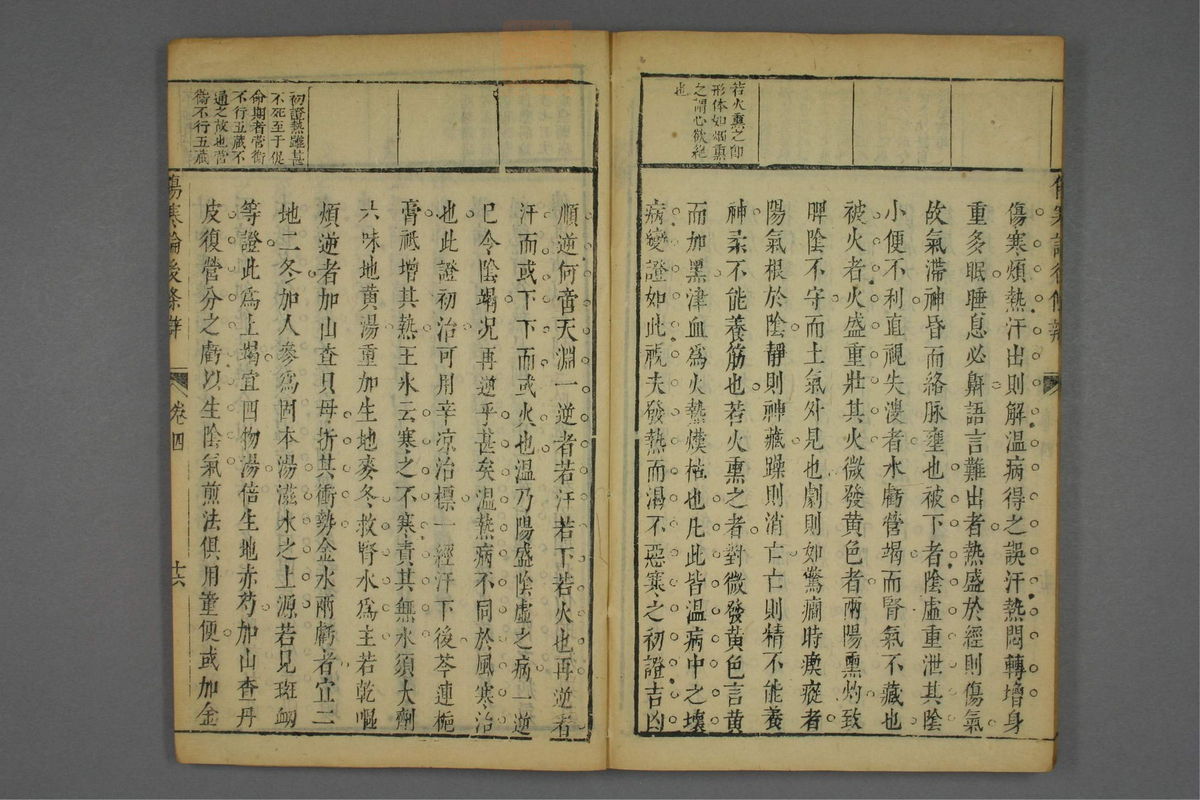 若火熏之即
形体如烟熏
之謂心欲絶
也
傷寒煩熱汗出則解溫病得之誤汗熱悶轉增身
重多眠睡息必鼾語言難出者熱盛於經則傷氣
故氣滯神昏而絡脉壅也被下者陰虛重泄其陰
小便不利直視失溲者水虧營竭而腎氣不藏也
被火者火盛重壯其火微發黄色者兩陽熏灼致
脾陰不守而土氣外見也劇則如驚癎時瘈瘲者
陽氣根於陰靜則神藏躁則消亡亡則精不能養
神柔不能養筋也若火熏之者對微發黄色言黄
而加黑津血爲火熱熯枯也凡此皆溫病中之壞
病變證如此視夫發熱而渴不惡寒之初證吉凶
順逆何啻天淵一逆者若汗若下若火也再逆者
汗而或下下而或火也溫乃陽盛陰虛之病一逆
已令陰竭况再逆乎甚矣溫熱病不同於風寒治
也此證初治可用辛凉治標一經汗下後芩連梔
膏祇增其熱王氷云寒之不寒責其無水須大劑
六味地黄湯重加生地麥冬救腎水爲主若乾嘔
煩逆者加山查貝母折其衝勢金水兩虧者宜二
地二冬加人參爲固本湯滋水之上源若見斑衂
等證此爲上竭宜四物湯倍生地赤芍加山查丹
皮復營分之虧以生陰氣煎法俱用童便或加金
初證熱雖甚
不死至于促
命期者營衛
不行五藏不
通之故也營
衛不行五藏
傷寒論後條辨
卷四
十六